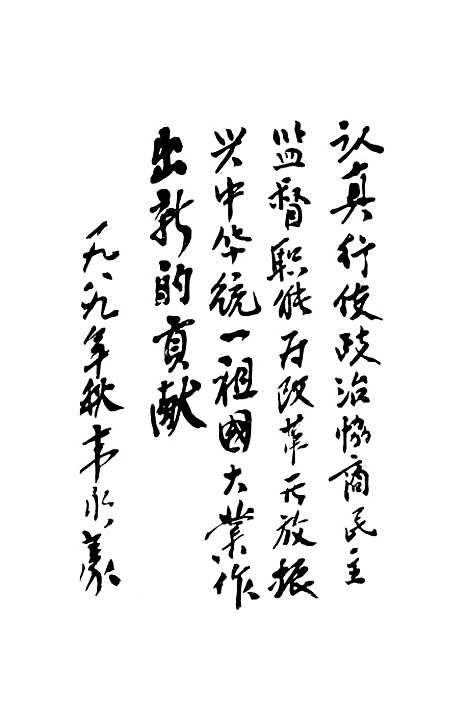 认真行使政治协商民主
监督职能为改革开放振
兴中华统一祖國大業作
出新的貢献
一九八九年秋韦永義